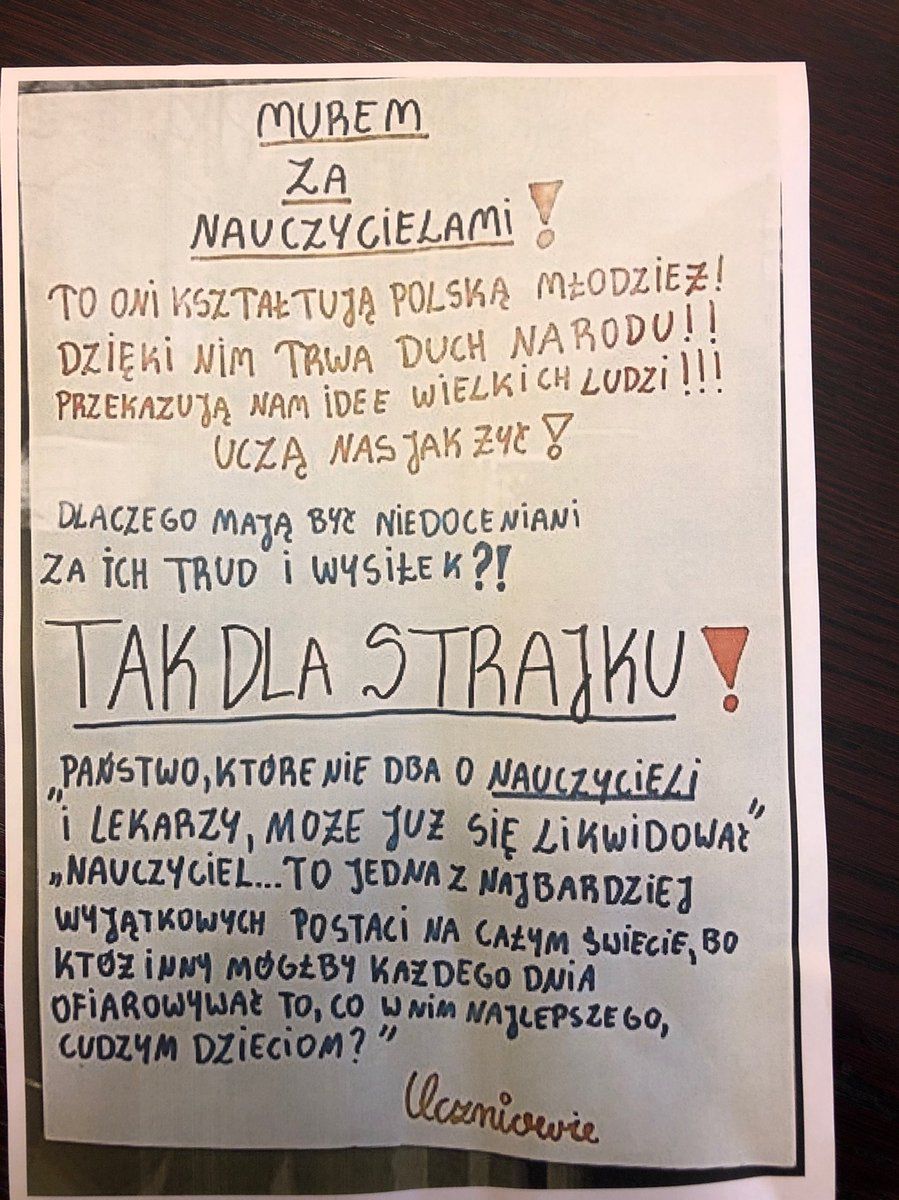 MUREM
ZA
NAUCZYCIELAMI!
TO ONI KSZTAŁTUJĄ POLSKĄ MŁODZIEŻ!
DZIĘKI NIM TRWA DUCH NARODU!!
PRZEKAZUJĄ NAM IDEE WIELKICH LUDZI!!!
UCZĄ NAS JAK ŻYĆ!
DLACZEGO MAJĄ BYĆ NIEDOCENIANI
ZA ICH TRUD I WYSIŁEK?!
TAK DLA STRAJKU!
„PAŃSTWO, KTÓRE NIE DBA O NAUCZYCIELI
I LEKARZY, MOŻE JUŻ SIĘ LIKWIDOWAĆ”
„NAUCZYCIEL... TO JEDNA Z NAJBARDZIEJ
WYJĄTKOWYCH POSTACI NA CAŁYM ŚWIECIE, BO
KTÓŻ INNY MÓGŁBY KAŻDEGO DNIA
OFIAROWYWAĆ TO, CO W NIM NAJLEPSZEGO,
CUDZYM DZIECIOM?”
Uczniowie